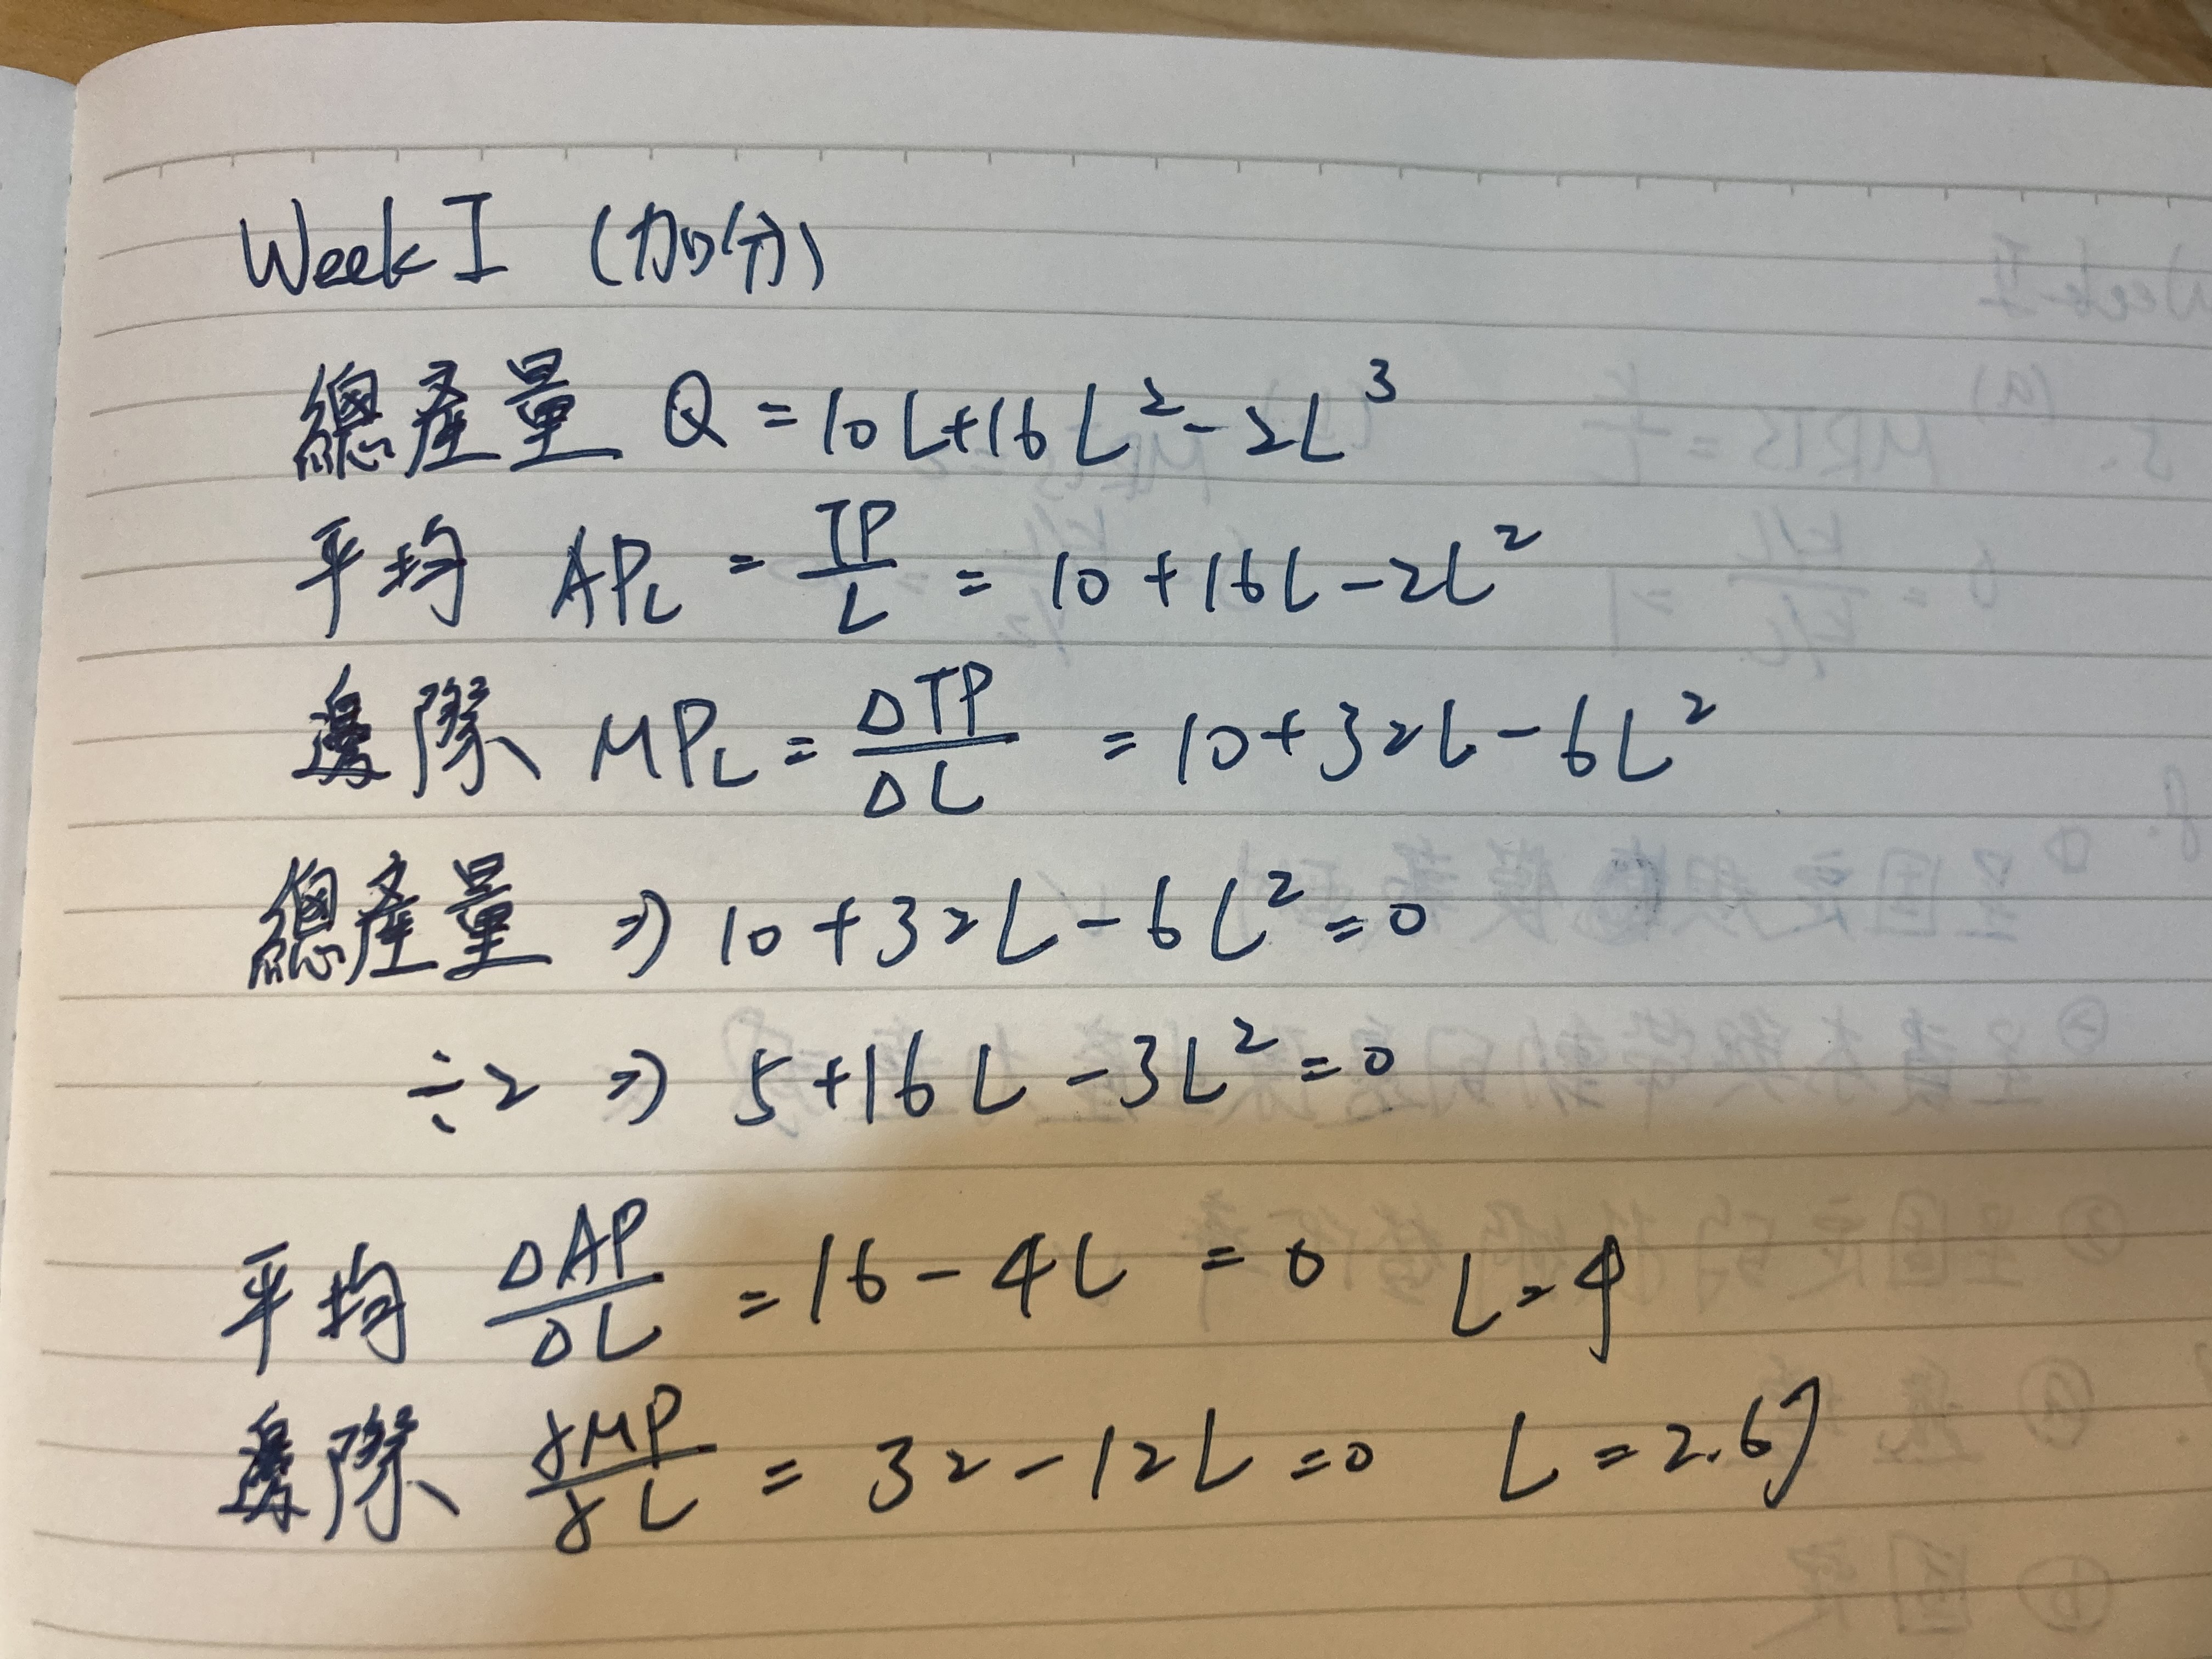 Week I (加分)
總產量 Q = 10L+16L²-2L³
平均 APL = TP/L = 10+16L-2L²
邊際 MPL = ΔTP/ΔL = 10+32L-6L²
總產量 ⇒ 10+32L-6L²=0
÷2 ⇒ 5+16L-3L²=0
平均 ΔAP/ΔL = 16-4L = 0 L=4
邊際 γMP/γL = 32-12L=0 L=2.67